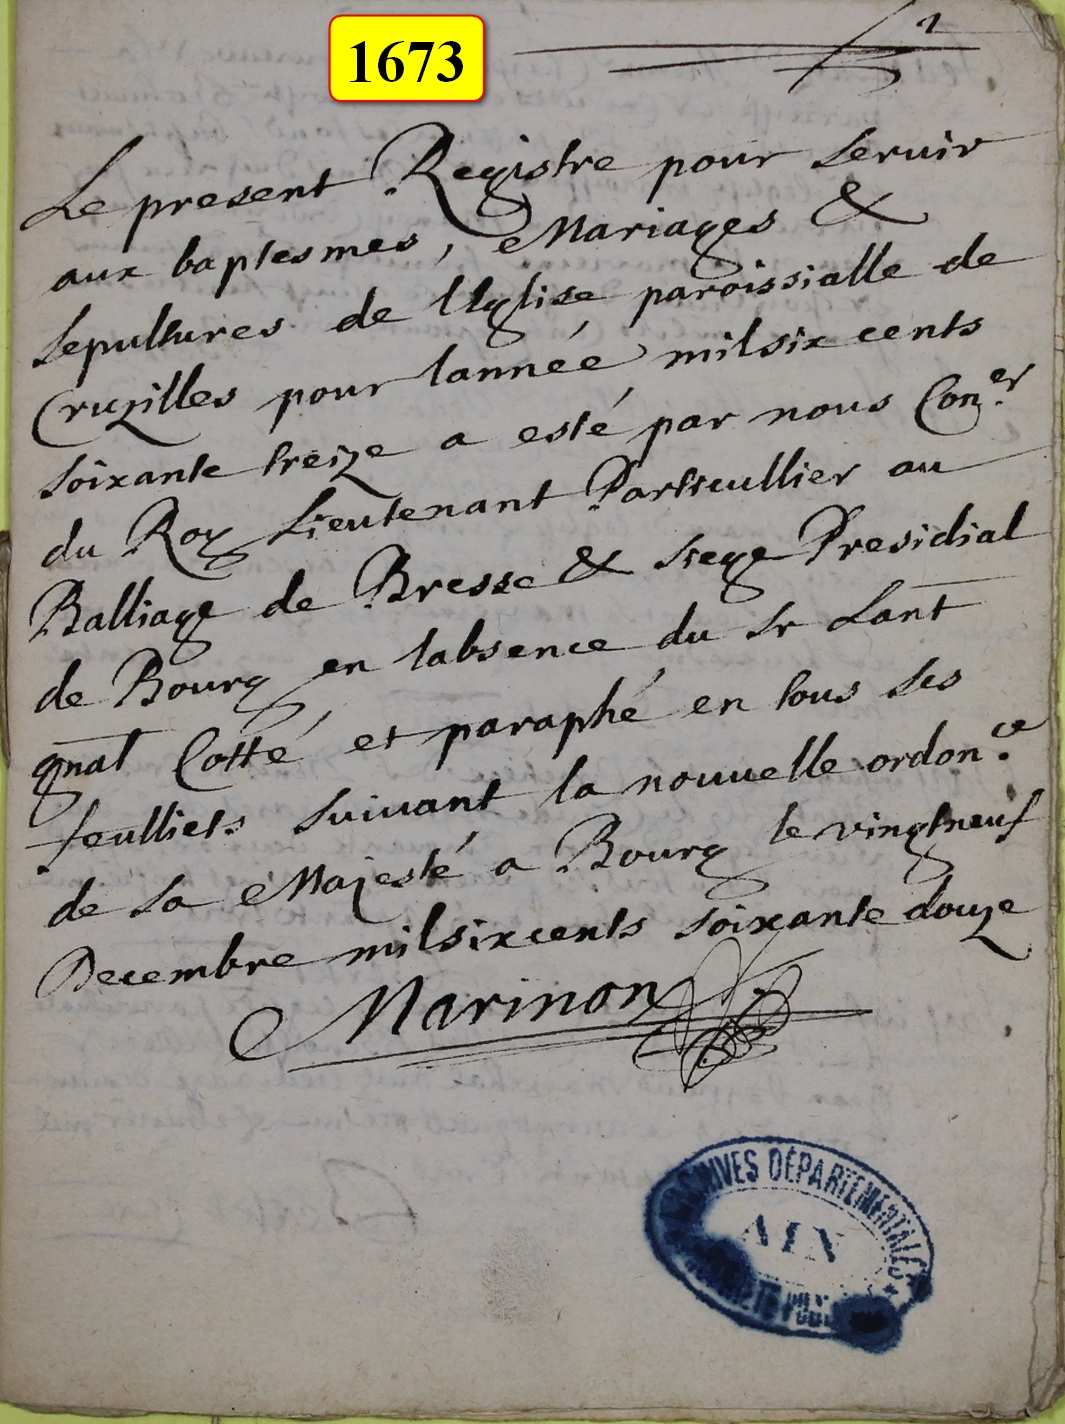 1673
Le present Registre pour seruir
aux baptesmes, Mariages &
sepultures de lEglise paroissialle de
Cruzilles pour lannée milsix cents
soixante treize a esté par nous Con.er
du Roy Lieutenant Particullier au
Balliage de Bresse & siege Presidial
de Bourg en labsence du sr Lant
gnal Cotté et paraphé en tous ses
feulliets suivant la nouuelle ordon.ce
de sa Majesté a Bourg le vingtneuf
Decembre milsixcents soixante douze
Marinon
ARCHIVES DÉPARTEMENTALES
AIN